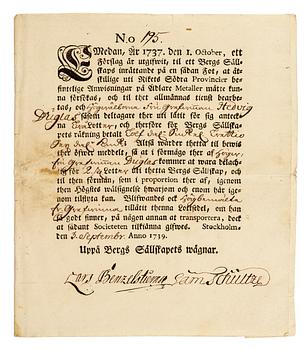 No 195.
Emedan, År 1737. den 1. October, ett
Förslag är utgifwit, til ett Bergs Säll-
skaps inrättande på en sådan Fot, at åt-
skillige uti Rikets Södra Provincier
befintelige Anwisningar på Ädlare Metaller måtte kun-
na försökas, och til thet allmännas tienst bearbe-
tas, och Högwälborna Fru Grefwinnan Hedvig
Duglas såsom deltagare ther uti låtit för sig anteck-
na Lotter, och therföre för Bergs Sällskapets
räkning betalt
Altså warder thetta til bewis
ther öfwer meddelt, så at i förmågo ther af
Fru Grefwinnan Duglas kommer at wara beläch-
tet för Lotter uti thetta Bergs Sällskap, och
til then förmån, som i proportion ther af, igenom
thet Högstes wälsignelse hwarjom och enom här ige-
nom tilflyta kan. Blifwandes ock Högbemeelte
Fr. Grefwinna tillåtit thenna Lottsedel, om han
så godt finner, på någon annan at transportera, dock
at sådant Societeten tilkänna gifwes. Stockholm-
den 3. Septembr. Anno 1739.
Uppå Bergs Sällskapets wägnar.
Lars Benzelstierna Sam Schultze